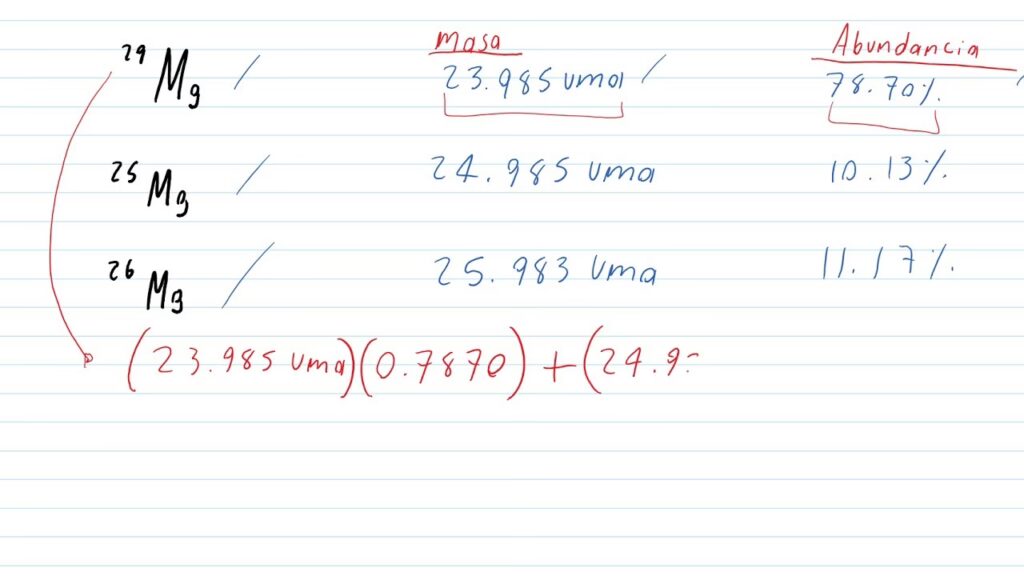 masa Abundancia
²⁹Mg / 23.985 uma / 78.70%. /
²⁵Mg / 24.985 uma 10.13%.
²⁶Mg / 25.983 uma 11.17%.
(23.985 uma)(0.7870) + (24.9